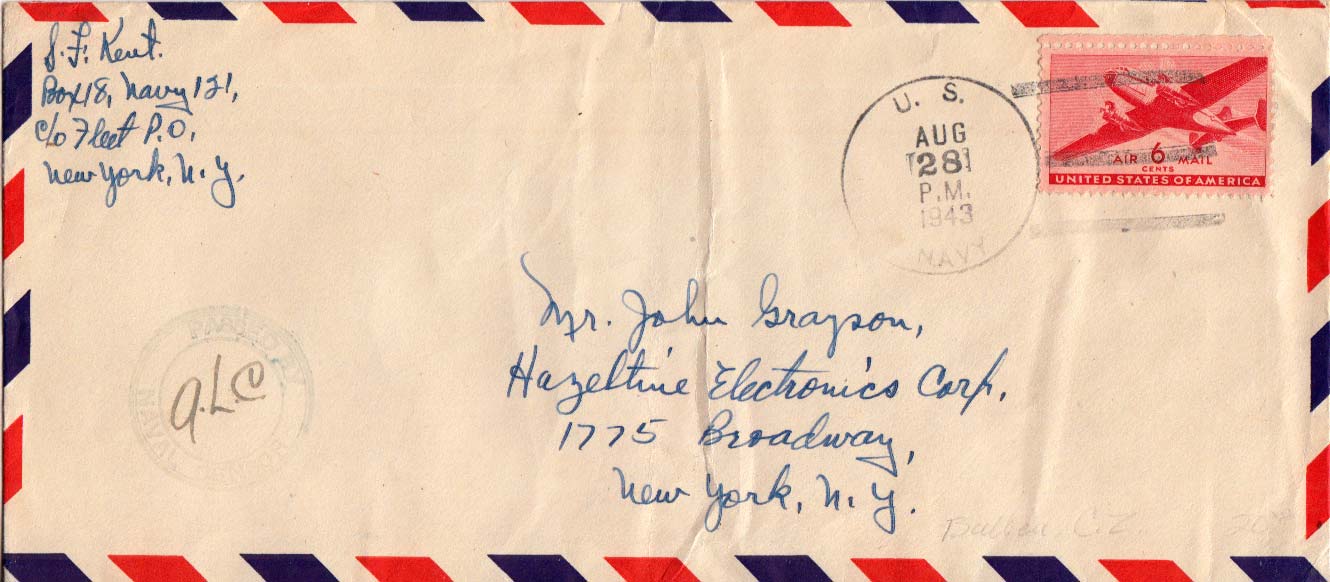 S. F. Kent.
Box 18, Navy 121,
c/o Fleet P.O.
New York, N.Y.
U. S.
AUG
28
P.M.
1943
NAVY
AIR 6 MAIL
CENTS
UNITED STATES OF AMERICA
Mr. John Grayson,
Hazeltine Electronics Corp.
1775 Broadway,
New York, N.Y.
PASSED BY
NAVAL CENSOR
a.L.C
Balboa, C.Z